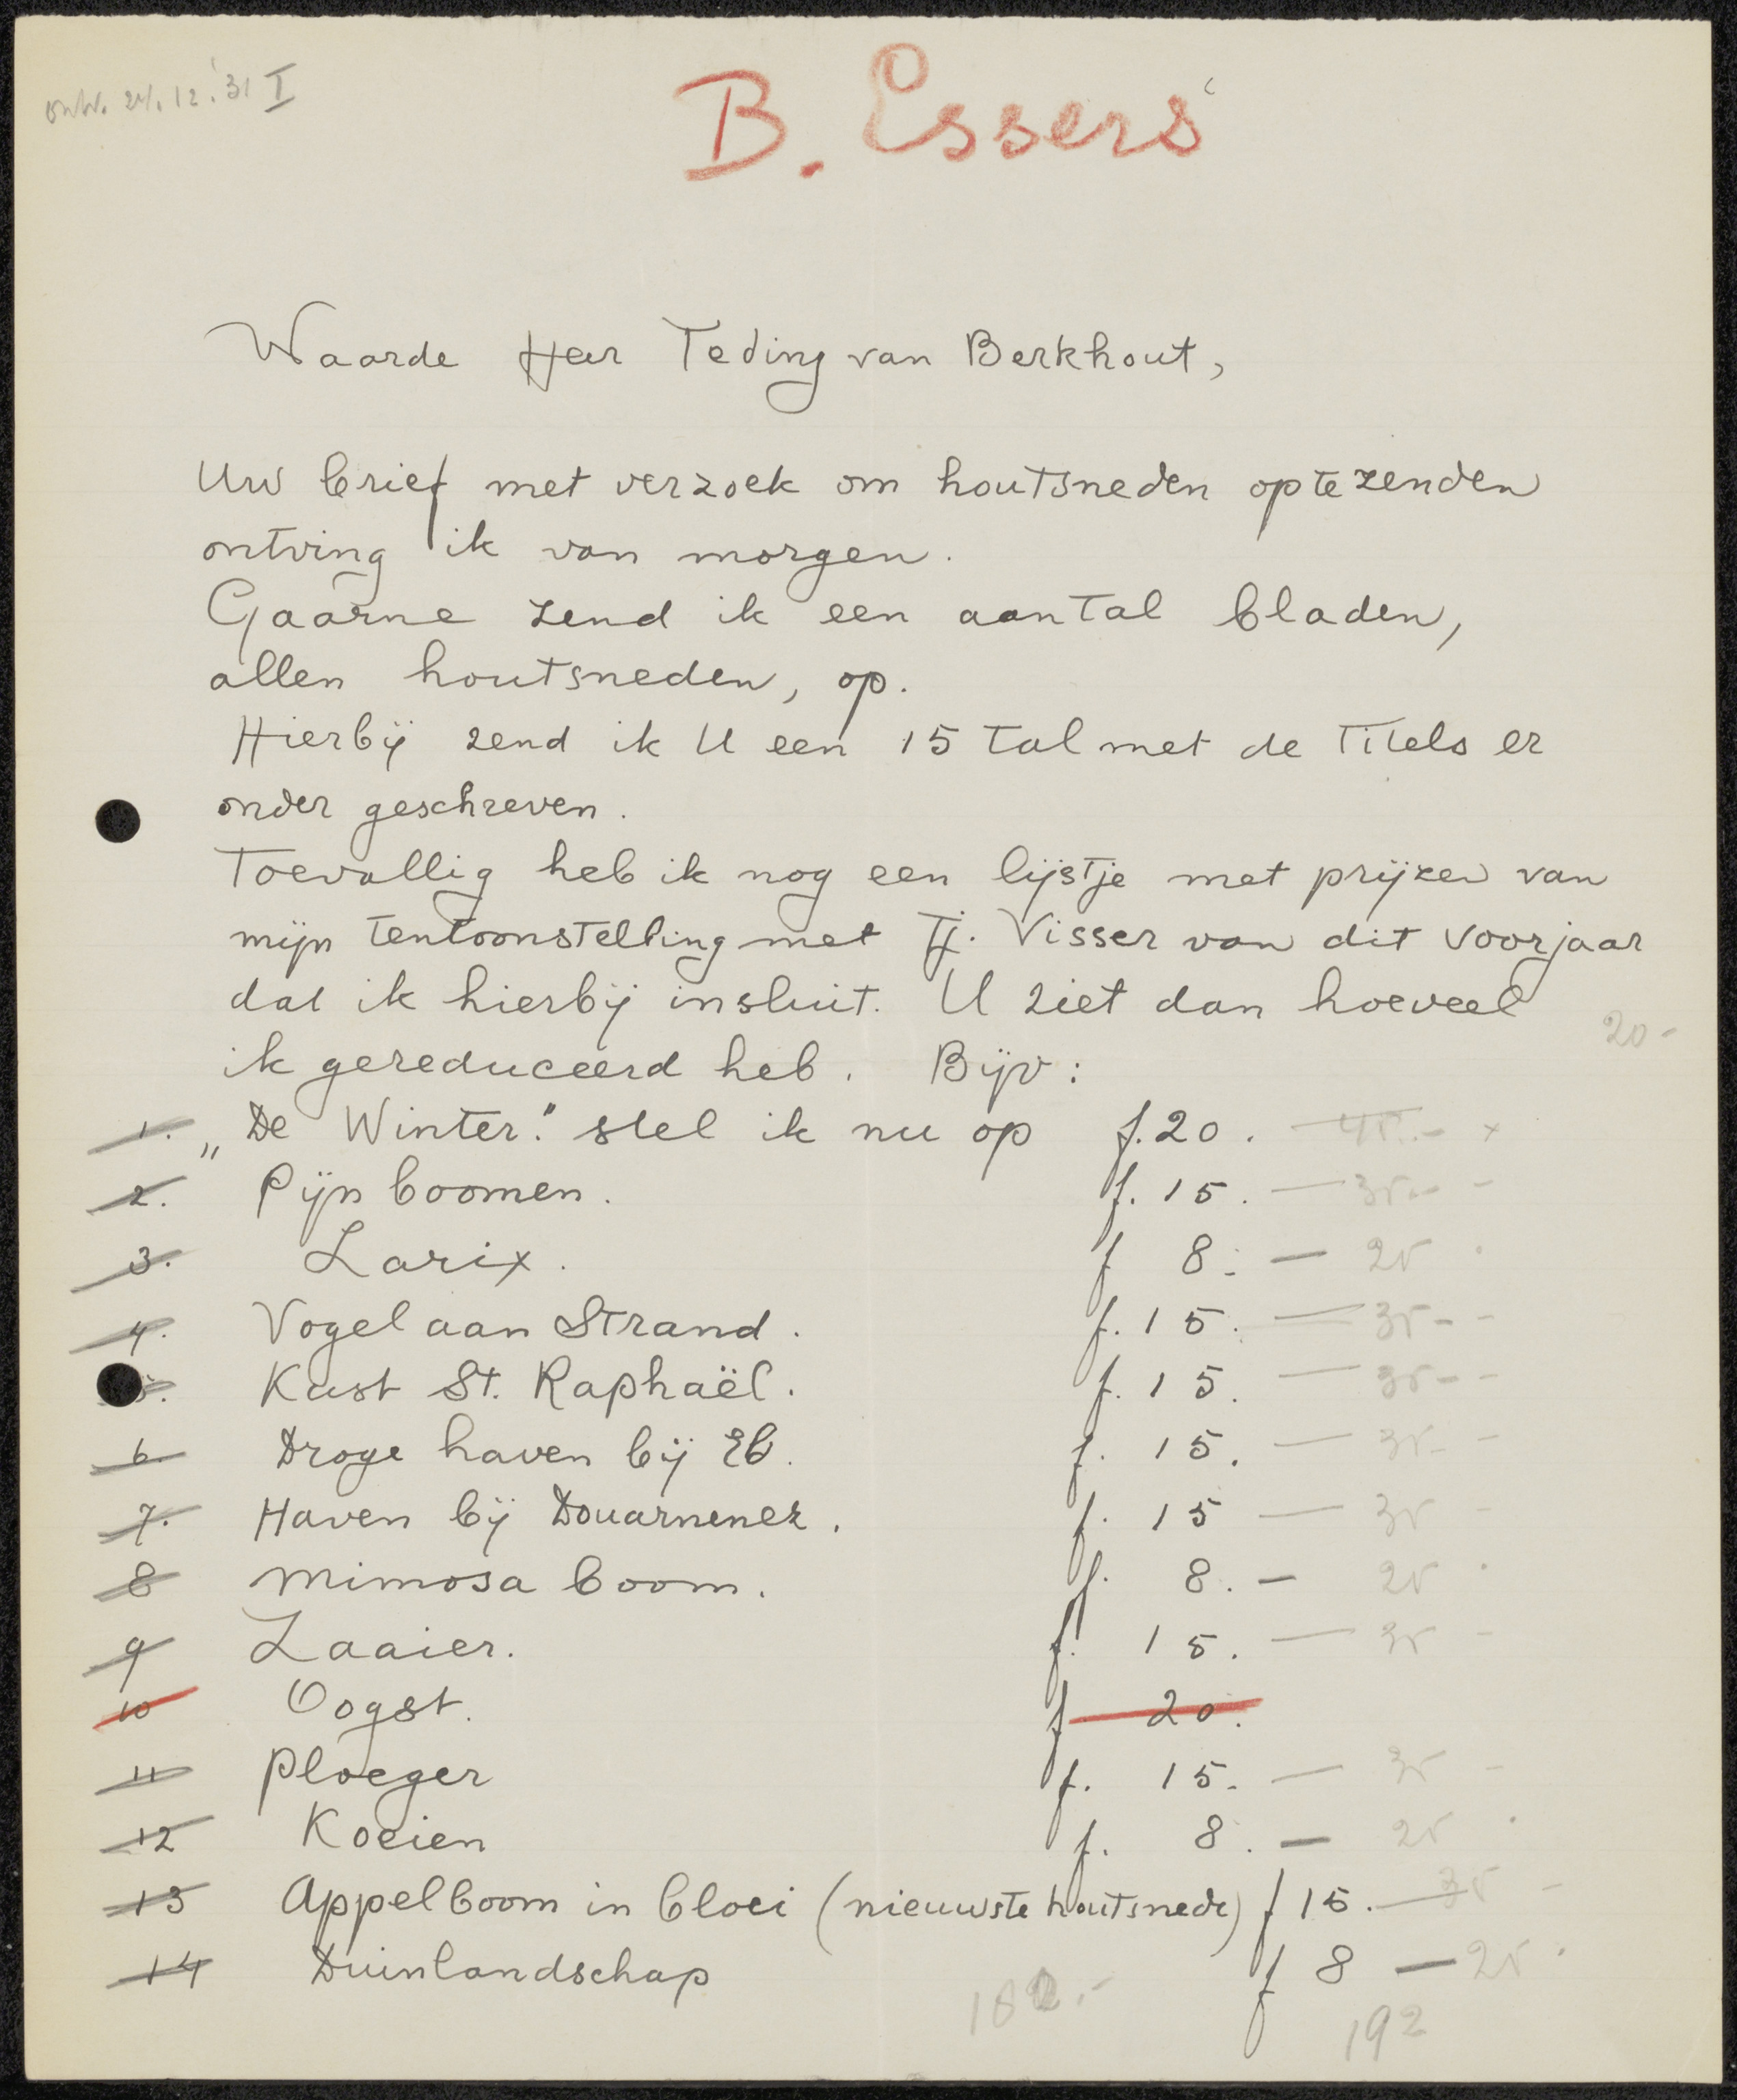 ontv. 24.12.'31 I
B. Essers
Waarde Heer Teding van Berkhout,
Uw brief met verzoek om houtsneden op te zenden
ontving ik van morgen.
Gaarne zend ik een aantal bladen,
allen houtsneden, op.
Hierbij zend ik U een 15 tal met de Titels er
onder geschreven.
Toevallig heb ik nog een lijstje met prijzen van
mijn tentoonstelling met Tj. Visser van dit voorjaar
dat ik hierbij insluit. U ziet dan hoeveel
20-
ik gereduceerd heb. Bijv:
1. „De Winter." stel ik nu op f. 20. —
2. Pijnboomen. f. 15. — 35.-
3. Larix. f 8.- — 25
4. Vogel aan Strand. f. 15. — 35-
5. Kust St. Raphaël. f. 15. — 35-
6. Droge haven bij Eb. f. 15. — 35-
7. Haven bij Douarnenez. f. 15 — 35
8 Mimosa boom. f. 8. — 25
9 Zaaier. f. 15. — 35
10 Oogst. f 20.
11 Ploeger f. 15. — 35
12 Koeien f. 8. — 25
13 Appelboom in bloei (nieuwste houtsnede) f 15. — 35
14 Duinlandschap f 8 — 25
192